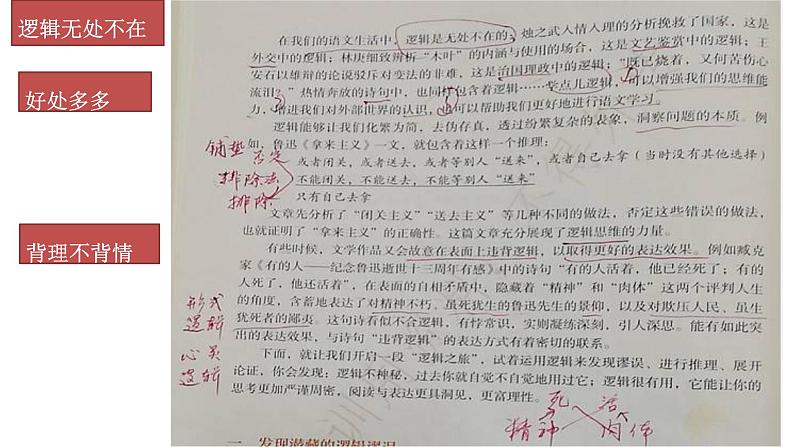 逻辑无处不在
好处多多
背理不背情
在我们的语文生活中，逻辑是无处不在的：烛之武人情入理的分析挽救了国家，这是
外交中的逻辑；林庚细致辨析“木叶”的内涵与使用的场合，这是文艺鉴赏中的逻辑；王
安石以雄辩的论说驳斥对变法的非难，这是治国理政中的逻辑；“既已烧着，又何苦伤心
流泪？”热情奔放的诗句中，也同样包含着逻辑……学点儿逻辑，可以增强我们的思维能
力，增进我们对外部世界的认识，也可以帮助我们更好地进行语文学习。
逻辑能够让我们化繁为简，去伪存真，透过纷繁复杂的表象，洞察问题的本质。例
如，鲁迅《拿来主义》一文，就包含着这样一个推理：
或者闭关，或者送去，或者等别人“送来”，或者自己去拿（当时没有其他选择）
不能闭关，不能送去，不能等别人“送来”
只有自己去拿
铺垫 否定
排除法
排除
文章先分析了“闭关主义”“送去主义”等几种不同的做法，否定这些错误的做法，
也就证明了“拿来主义”的正确性。这篇文章充分展现了逻辑思维的力量。
有些时候，文学作品又会故意在表面上违背逻辑，以取得更好的表达效果。例如臧克
家《有的人——纪念鲁迅逝世十三周年有感》中的诗句“有的人活着，他已经死了；有的
人死了，他还活着”，在表面的自相矛盾中，隐藏着“精神”和“肉体”这两个评判人生
的角度，含蓄地表达了对精神不朽、虽死犹生的鲁迅先生的景仰，以及对欺压人民、虽生
犹死者的鄙夷。这句诗看似不合逻辑，有悖常识，实则凝练深刻，引人深思。能有如此突
出的表达效果，与诗句“违背逻辑”的表达方式有着密切的联系。
形式
逻辑
心灵
逻辑
下面，就让我们开启一段“逻辑之旅”，试着运用逻辑来发现谬误、进行推理、展开
论证，你会发现：逻辑不神秘，过去你就自觉不自觉地用过它；逻辑很有用，它能让你的
思考更加严谨周密，阅读与表达更具洞见，更富理性。
死 活
精神 肉体
一 发现潜藏的逻辑谬误